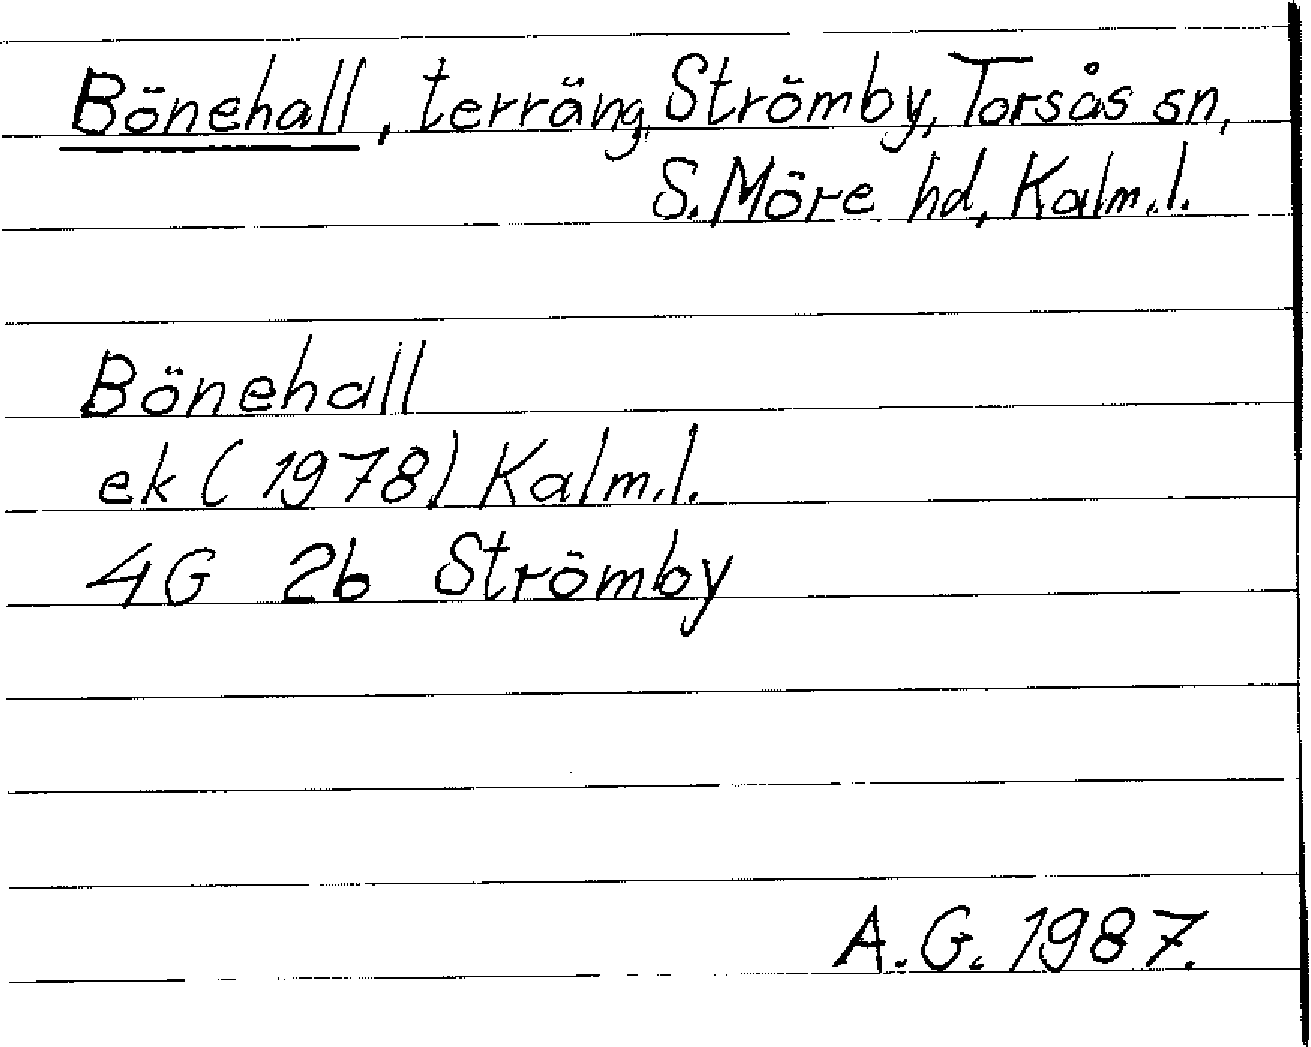 Bönehall, terräng, Strömby, Torsås sn,
S. Möre hd, Kalm. l.
Bönehall
ek (1978) Kalm. l.
4G 2b Strömby
A. G. 1987.